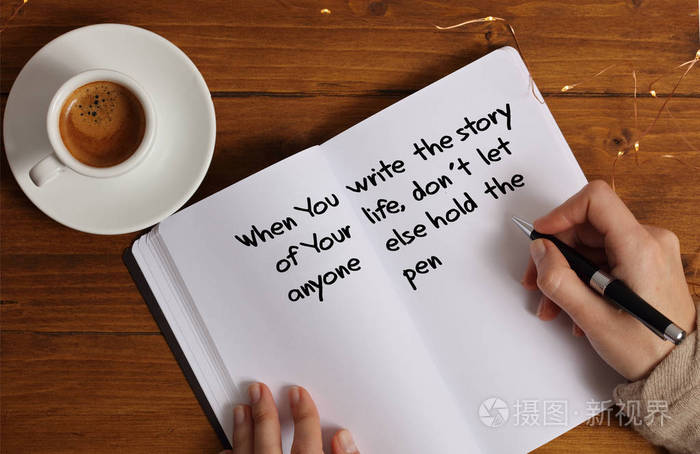 When You write the story
of Your life, don't let
anyone else hold the
pen
摄图·新视界